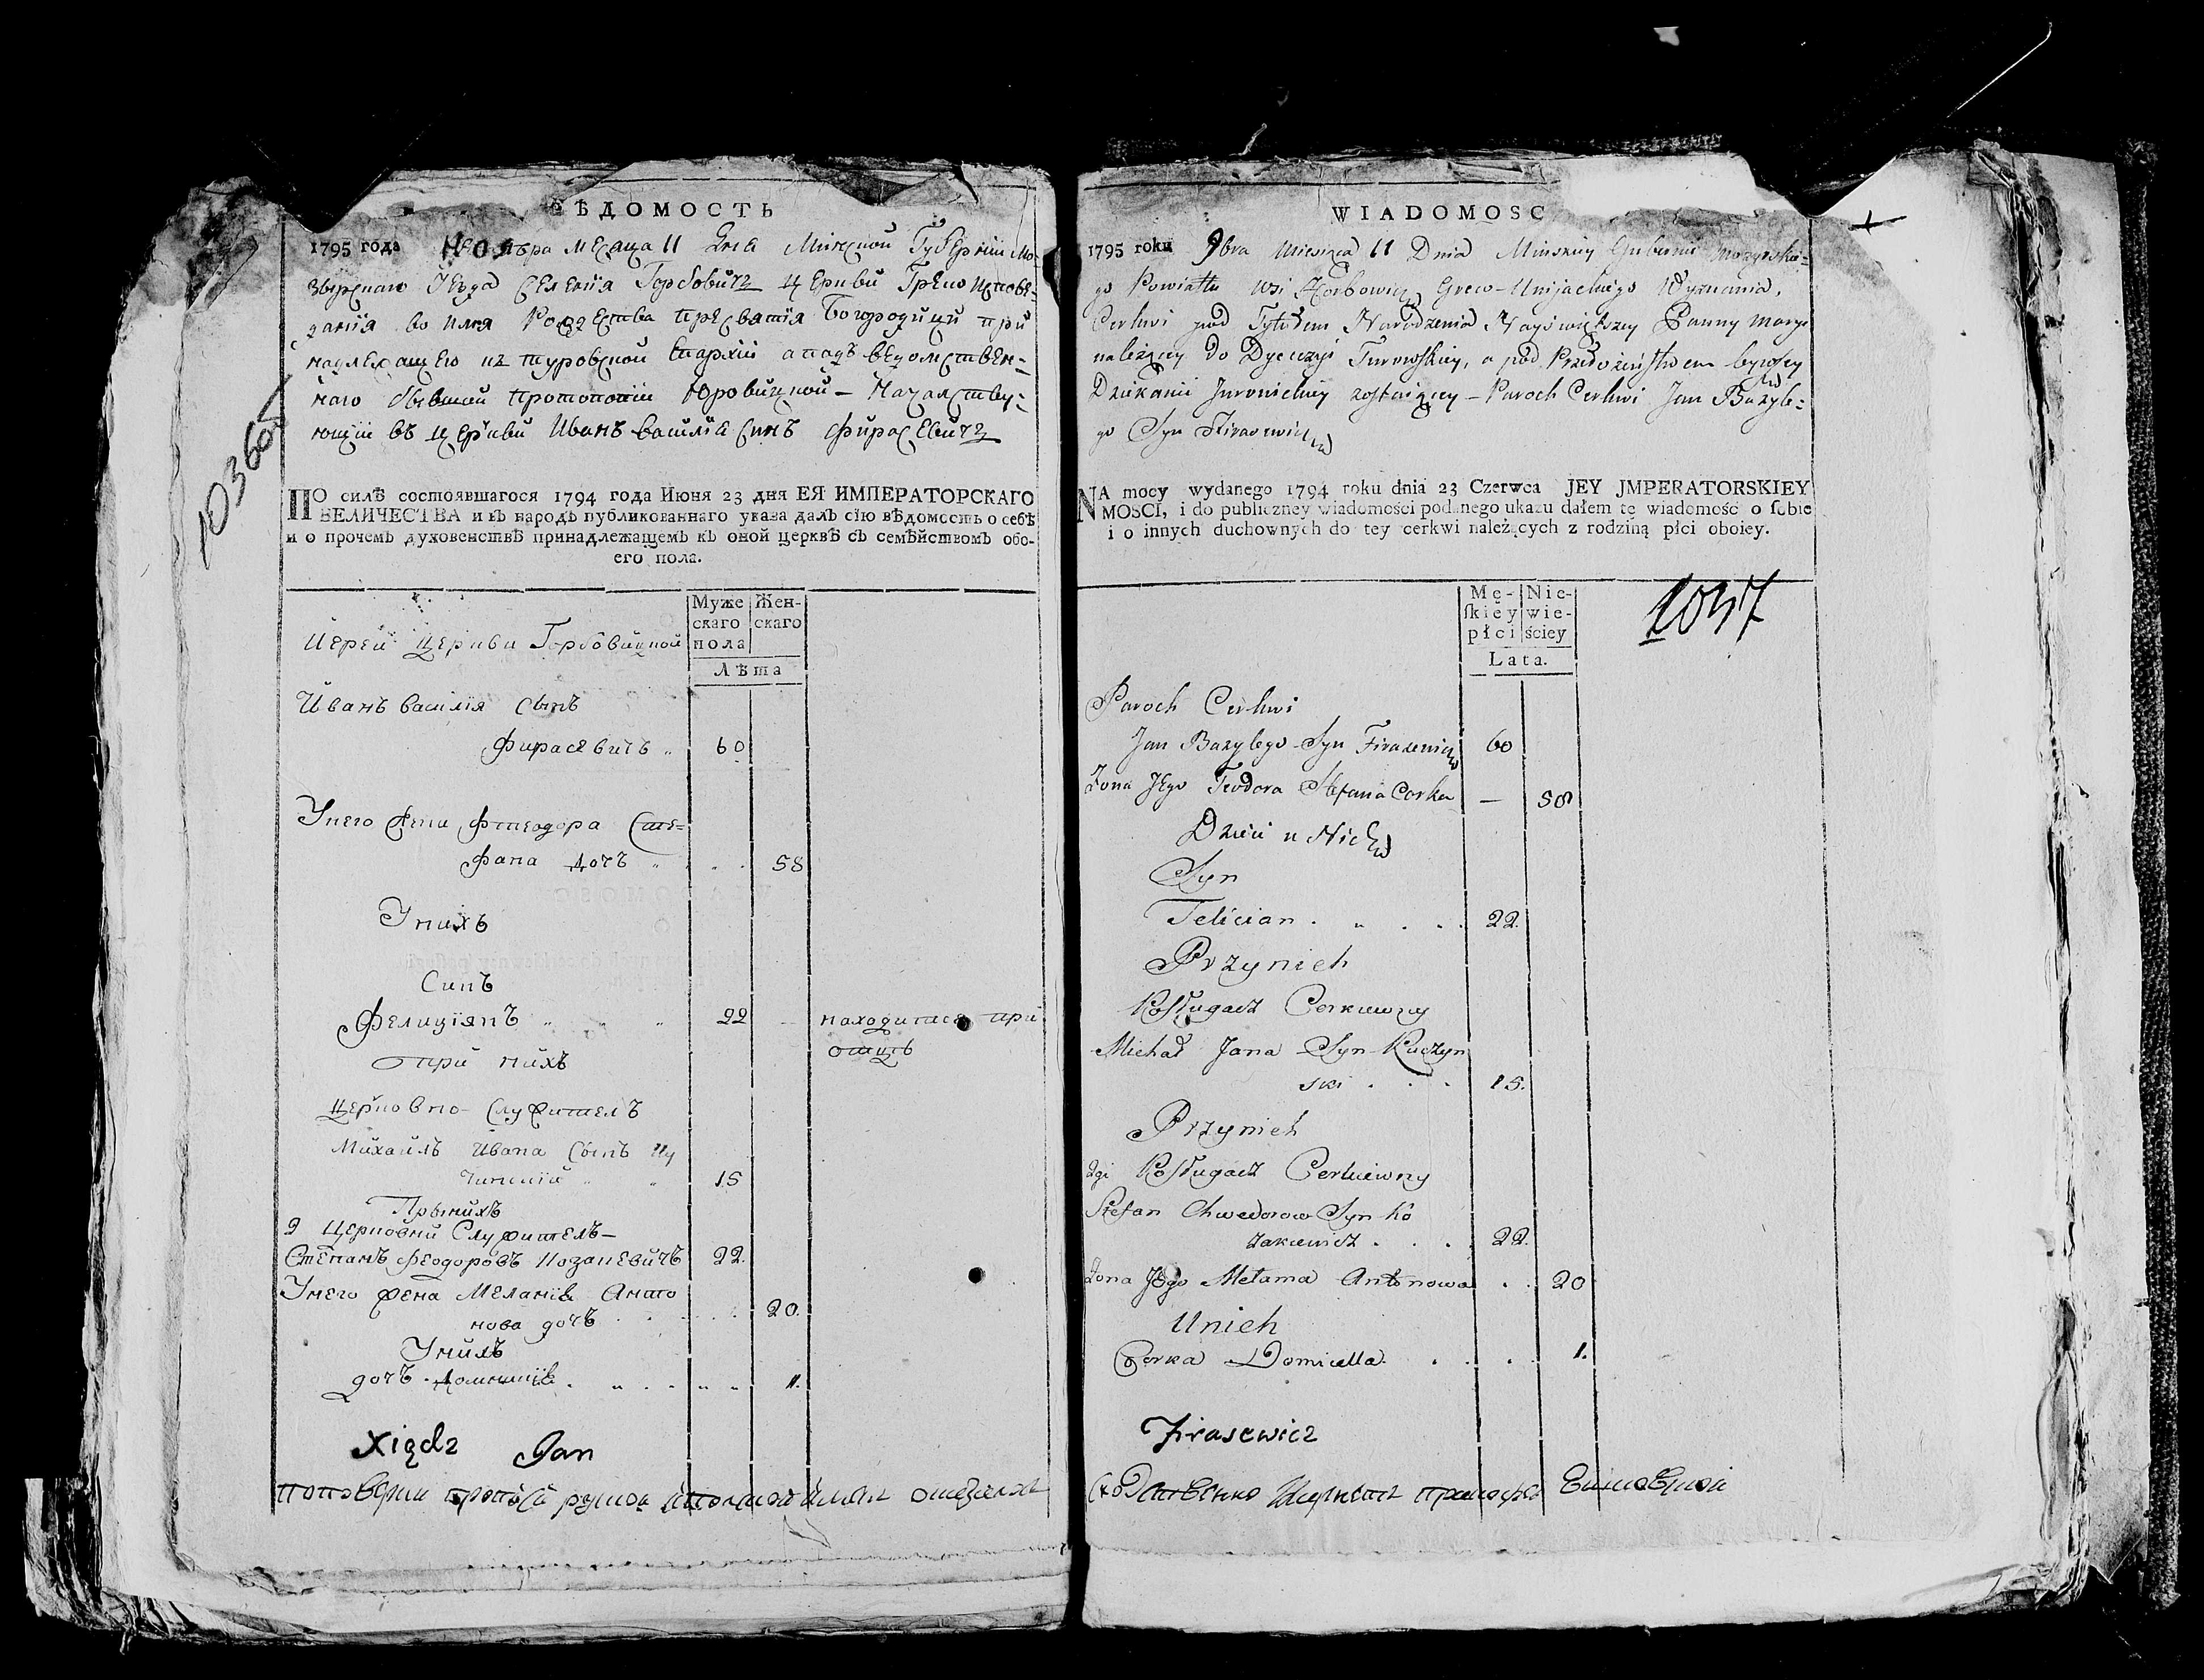 ѢДОМОСТЬ
1795 года Ноября месяца 11 Дня Минской Губернии Мо-
зырскаго Уезда Селения Горбовичъ Церкви Греко
во имя Рождества Пресвятия Богородици при
надлежащею къ Туровской Епархіи
бывшей Протопопіи Юровицкой – Началству-
ющіи въ Церкви Иванъ Василія Синъ Фирасевичъ
10366
ПО силѣ состоявшагося 1794 года Июня 23 дня ЕЯ ИМПЕРАТОРСКАГО
ВЕЛИЧЕСТВА и въ народъ публикованнаго указа далъ сію вѣдомость о себѣ
и о прочемъ духовенствѣ принадлежащемъ къ оной церквѣ съ семѣйствомъ обо-
его пола.
Муже Жен-
скаго скаго
пола
Лѣта
Иерей Церкви Горбовицкой
Иванъ Василія Сынъ
Фирасевичъ 60
Унего Жена Фтеодора Сте-
фана дочъ 58
Унихъ
Синъ
Фелиціянъ 22 находится при
отцѣ
при нихъ
Церковно-Служителъ
Михаилъ Ивана Сынъ Ку
чинскій 15
Прынихъ
2 Церковни Служителъ –
Степанъ Феодоровъ Козакевичъ 22.
Унего жена Меланія Анто
нова дочъ 20.
Унихъ
дочъ 1.
Xiądz Jan
WIADOMOSC
1795 roku 9bra Miesiąca 11 Dnia Minskiey Gubernii Mozyrskie-
go Powiattu wsi Horbowicz Greco-Unijackiego Wyznania,
Cerkwi pod Tytułem Narodzenia Nayświętszey Panny Maryi
należący do Dyecezyi Turowskiey, a pod Przełożeństwem bywszey
Dziekanii Jurewickiey zostaiącey – Paroch Cerkwi Jan Bazyle-
go Syn Firasewicz
NA mocy wydanego 1794 roku dnia 23 Czerwca JEY JMPERATORSKIEY
MOSCI, i do publiczney wiadomości podanego ukazu dałem tę wiadomość o sobie
i o innych duchownych do tey cerkwi należących z rodziną płci oboiey.
Mę- Nie-
skiey wie-
płci ściey
Lata.
1037
Paroch Cerkwi
Jan Bazylego Syn Firasewicz 60
Żona Jego Teodora Stefana Corka — 58
Dzieci u Nich
Syn
Felician 22.
Przynich
Posługacz Cerkiewny
Michał Jana Syn Kuczyn
ski 15.
Przynich
2gi Posługacz Cerkiewny
Stefan Chwedorow Syn Ko
zakiewicz 22.
Żona Jego Melania Antonowa 20
Unich
Corka Domicella 1.
Firasewicz